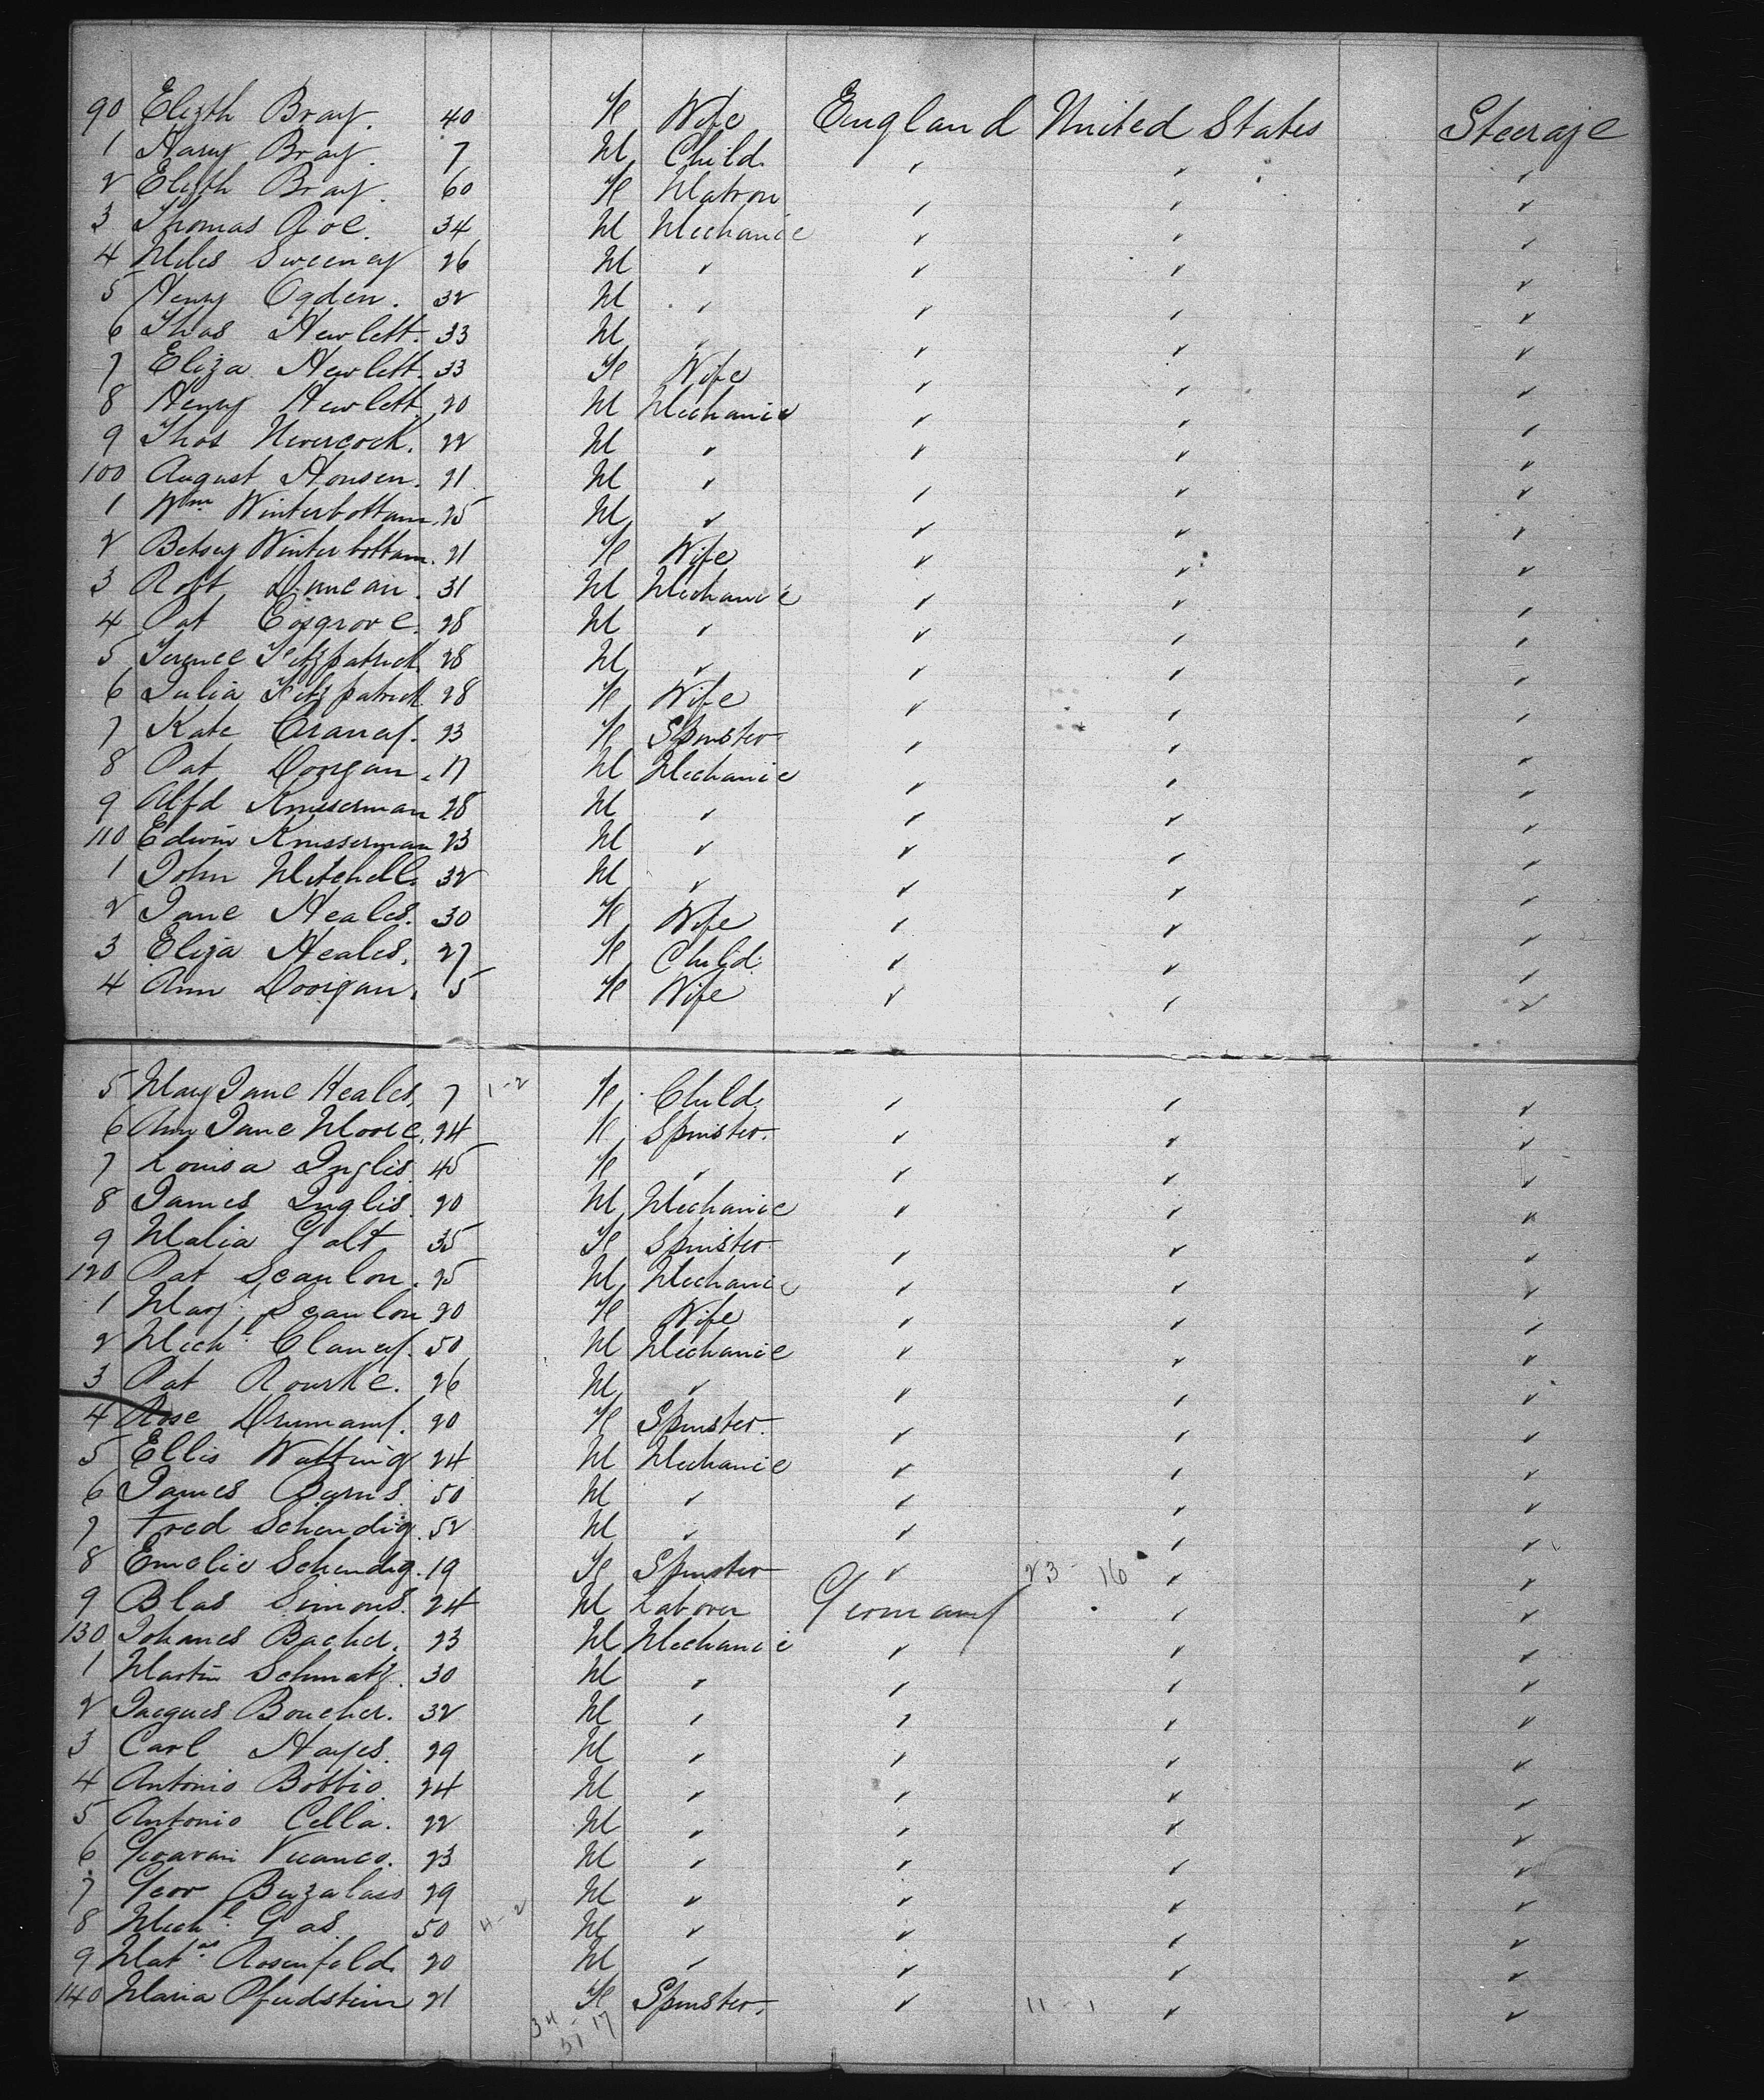 90 Elizth Bray. 40 F Wife England United States Steerage
1 Harry Bray. 7 M Child. ✓ ✓ ✓
2 Elizth Bray. 60 F Matron ✓ ✓ ✓
3 Thomas Roe. 34 M Mechanic ✓ ✓ ✓
4 Miles Sweeney 26 M ✓ ✓ ✓ ✓
5 Henry Ogden. 32 M ✓ ✓ ✓ ✓
6 Thos Hewlett. 33 M ✓ ✓ ✓ ✓
7 Eliza Hewlett. 33 F Wife ✓ ✓ ✓
8 Henry Hewlett. 20 M Mechanic ✓ ✓ ✓
9 Thos 22 M ✓ ✓ ✓ ✓
100 August Honsen. 21 M ✓ ✓ ✓ ✓
1 Wm Winterbottam. 25 M ✓ ✓ ✓ ✓
2 Betsey Winterbottam. 21 F Wife ✓ ✓ ✓
3 Robt Duncan. 31 M Mechanic ✓ ✓ ✓
4 Pat Cosgrove. 28 M ✓ ✓ ✓ ✓
5 Terence Fitzpatrick 28 M ✓ ✓ ✓ ✓
6 Julia Fitzpatrick. 28 F Wife ✓ ✓ ✓
7 Kate 23 F Spinster ✓ ✓ ✓
8 Pat Doorgan. 17 M Mechanic ✓ ✓ ✓
9 Alfd 28 M ✓ ✓ ✓ ✓
110 Edwin 23 M ✓ ✓ ✓ ✓
1 John Mitchell. 32 M ✓ ✓ ✓ ✓
2 Jane Heales. 30 F Wife ✓ ✓ ✓
3 Eliza Heales. 27 F Child. ✓ ✓ ✓
4 Ann Doorgan. 5 F Wife ✓ ✓ ✓
5 Mary Jane Heales. 7 1-2 F Child. ✓ ✓ ✓
6 Ann Jane Moore. 24 F Spinster. ✓ ✓ ✓
7 Louisa Inglis. 45 F ✓ ✓ ✓ ✓
8 James Inglis. 20 M Mechanic ✓ ✓ ✓
9 Malia Galt 35 F Spinster ✓ ✓ ✓
120 Pat Scanlon. 25 M Mechanic ✓ ✓ ✓
1 Mary Scanlon 20 F Wife ✓ ✓ ✓
2 Michl Clancy. 50 M Mechanic ✓ ✓ ✓
3 Pat Rourke. 26 M ✓ ✓ ✓ ✓
4 Rose 20 F Spinster. ✓ ✓ ✓
5 Ellis Watting 24 M Mechanic ✓ ✓ ✓
6 James Burns. 50 M ✓ ✓ ✓ ✓
7 Fred Schendig. 52 M ✓ ✓ ✓ ✓
8 Emelie Schendig. 19 F Spinster ✓ 23-16 ✓ ✓
9 Blas Simons. 24 M Laborer Germany ✓ ✓
130 Johanes Bacher. 23 M Mechanic ✓ ✓ ✓
1 Martin Schmatz. 30 M ✓ ✓ ✓ ✓
2 Jacques Boucher. 32 M ✓ ✓ ✓ ✓
3 Carl Hayes. 29 M ✓ ✓ ✓ ✓
4 Antonio Bobbio. 24 M ✓ ✓ ✓ ✓
5 Antonio Cella. 22 M ✓ ✓ ✓ ✓
6 23 M ✓ ✓ ✓ ✓
7 29 M ✓ ✓ ✓ ✓
8 Michl Gas. 50 4-2 M ✓ ✓ ✓ ✓
9 Matas Rosenfeld. 20 M ✓ ✓ ✓ ✓
140 Maria 21 F Spinster. ✓ 11-1 ✓ ✓
34-17